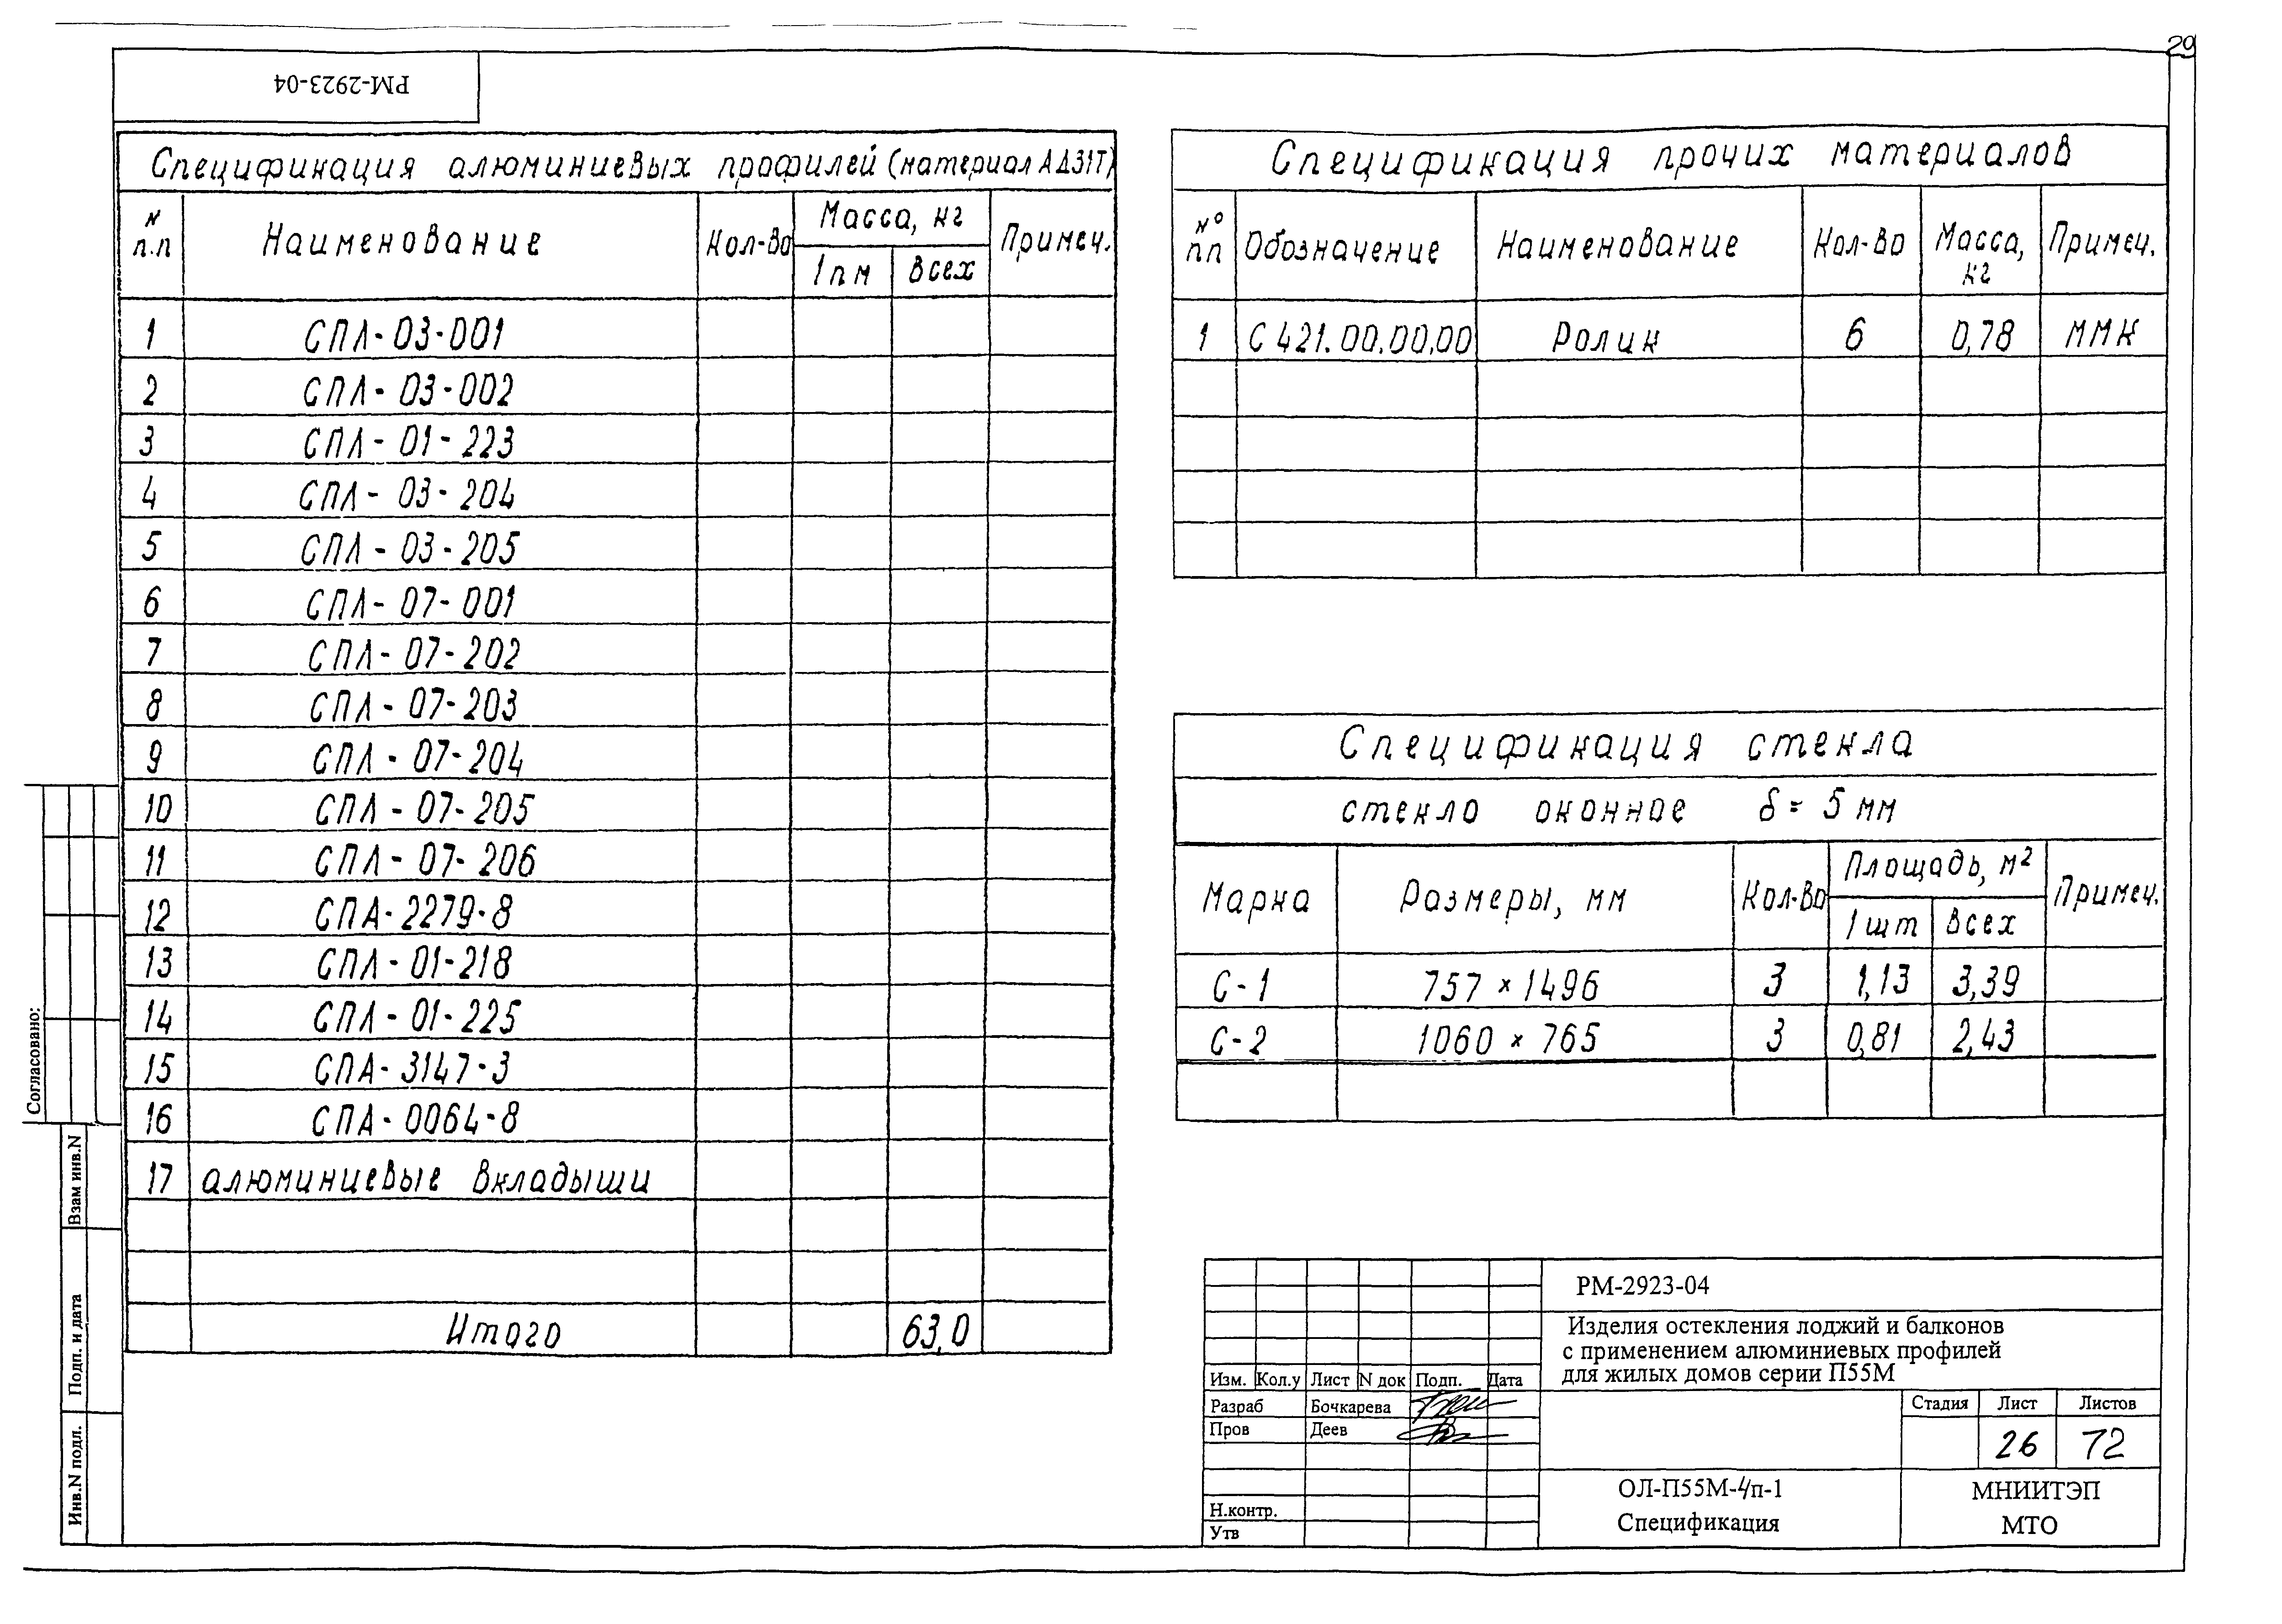 29
РМ-2923-04
Спецификация алюминиевых профилей (материал АД31Т)
N п.п Наименование Кол-во Масса, кг Примеч.
1 п м всех
1 СПЛ-03-001
2 СПЛ-03-002
3 СПЛ-01-223
4 СПЛ-03-204
5 СПЛ-03-205
6 СПЛ-07-001
7 СПЛ-07-202
8 СПЛ-07-203
9 СПЛ-07-204
10 СПЛ-07-205
11 СПЛ-07-206
12 СПА-2279-8
13 СПЛ-01-218
14 СПЛ-01-225
15 СПА-3147-3
16 СПА-0064-8
17 алюминиевые вкладыши
Итого 63,0
Спецификация прочих материалов
N° пп Обозначение Наименование Кол-во Масса, кг Примеч.
1 С 421.00.00.00 Ролик 6 0,78 ММК
Спецификация стекла
стекло оконное δ = 5 мм
Марка Размеры, мм Кол-во Площадь, м² Примеч.
1 шт всех
С-1 757 × 1496 3 1,13 3,39
С-2 1060 × 765 3 0,81 2,43
Согласовано:
Взам инв.N
Подп. и дата
Инв.N подл.
РМ-2923-04
Изделия остекления лоджий и балконов
с применением алюминиевых профилей
для жилых домов серии П55М
Изм. Кол.у Лист N док Подп. Дата
Разраб Бочкарева
Пров Деев
Н.контр.
Утв
Стадия Лист Листов
26 72
ОЛ-П55М-4/п-1
Спецификация
МНИИТЭП
МТО